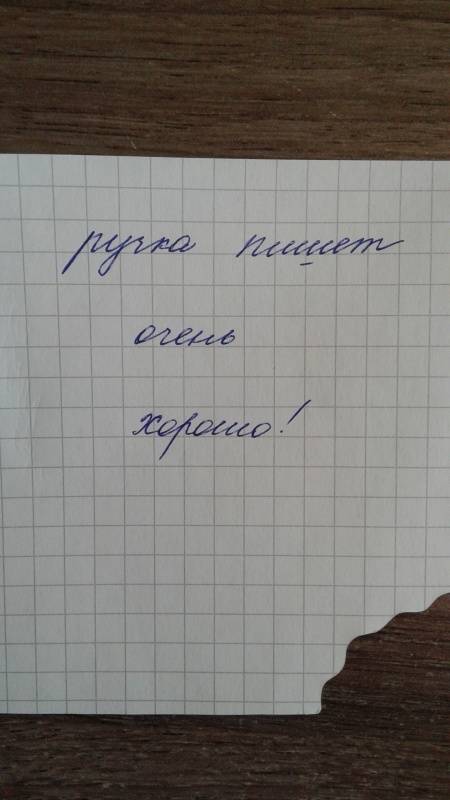 ручка пишет
очень
хорошо!